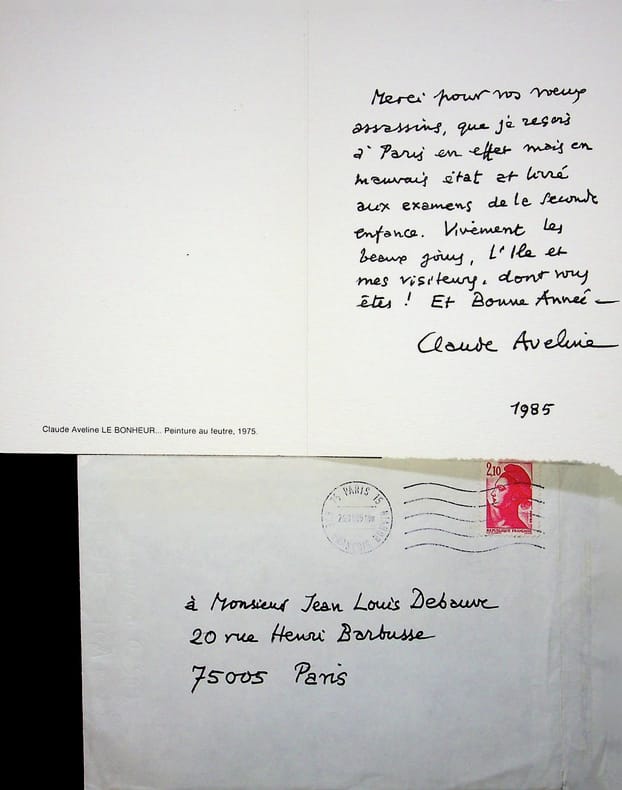 Merci pour vos voeux
assassins, que je reçois
à Paris en effet mais en
mauvais état et livré
aux examens de la seconde
enfance. Vivement les
beaux jours, L'Ile et
mes visiteurs, dont vous
êtes ! Et Bonne Année —
Claude Aveline
1985
Claude Aveline LE BONHEUR... Peinture au feutre, 1975.
75 PARIS 15
2,10
à Monsieur Jean Louis Debauve
20 rue Henri Barbusse
75005 Paris